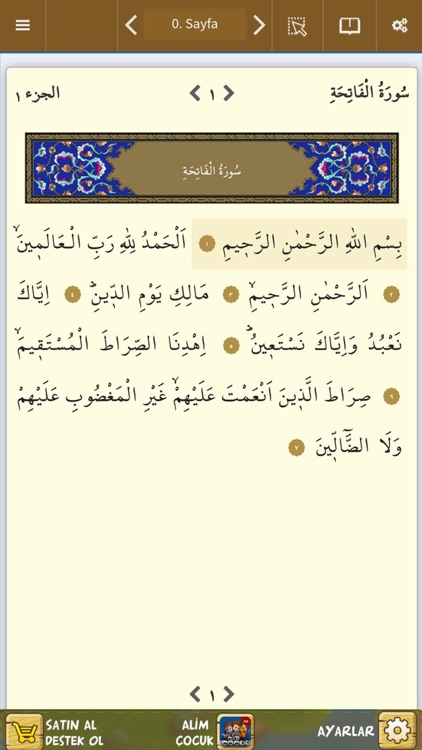 0. Sayfa
سُورَةُ الْفَاتِحَةِ
١
الجزء ١
سُورَةُ الْفَاتِحَةِ
بِسْمِ اللّٰهِ الرَّحْمٰنِ الرَّح۪يمِ ١ اَلْحَمْدُ لِلّٰهِ رَبِّ الْعَالَم۪ينَۙ
٢ اَلرَّحْمٰنِ الرَّح۪يمِۙ ٣ مَالِكِ يَوْمِ الدّ۪ينِۜ ٤ اِيَّاكَ
نَعْبُدُ وَاِيَّاكَ نَسْتَع۪ينُۜ ٥ اِهْدِنَا الصِّرَاطَ الْمُسْتَق۪يمَۙ
٦ صِرَاطَ الَّذ۪ينَ اَنْعَمْتَ عَلَيْهِمْۙ غَيْرِ الْمَغْضُوبِ عَلَيْهِمْ
وَلَا الضَّٓالّ۪ينَ ٧
١
SATIN AL
DESTEK OL
ALİM
ÇOCUK
AYARLAR